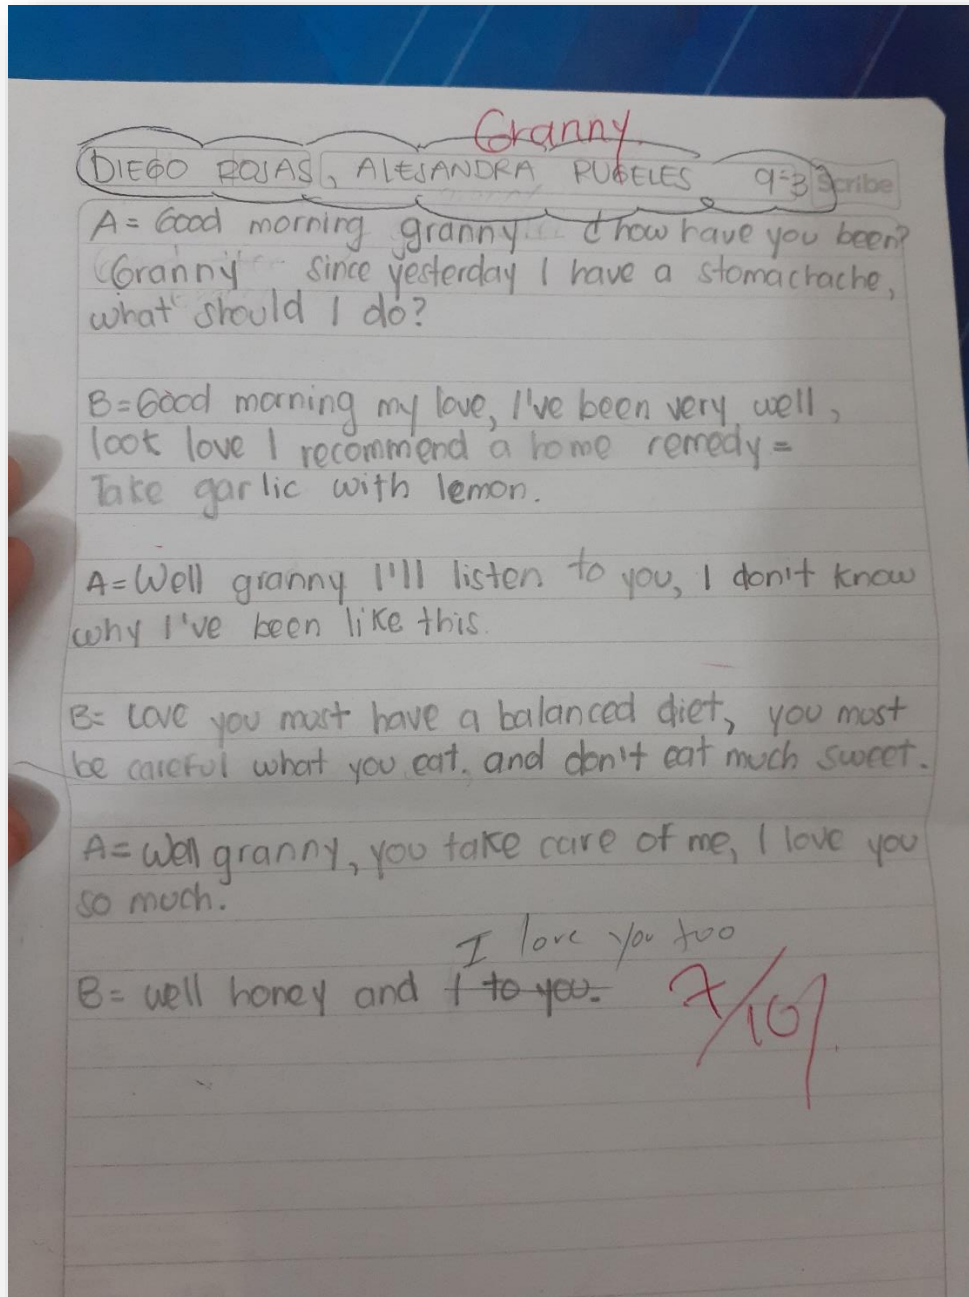 Granny
DIEGO ROJAS, ALEJANDRA RUBELES 9=3 Scribe
A= Good morning granny ¿how have you been?
Granny since yesterday I have a stomachache,
what should I do?
B= Good morning my love, I've been very well,
look love I recommend a home remedy=
Take garlic with lemon.
A= Well granny I'll listen to you, I don't know
why I've been like this.
B= Love you must have a balanced diet, you must
be careful what you eat. and don't eat much sweet.
A= Well granny, you take care of me, I love you
so much.
I love you too
B= well honey and I to you.
7/10